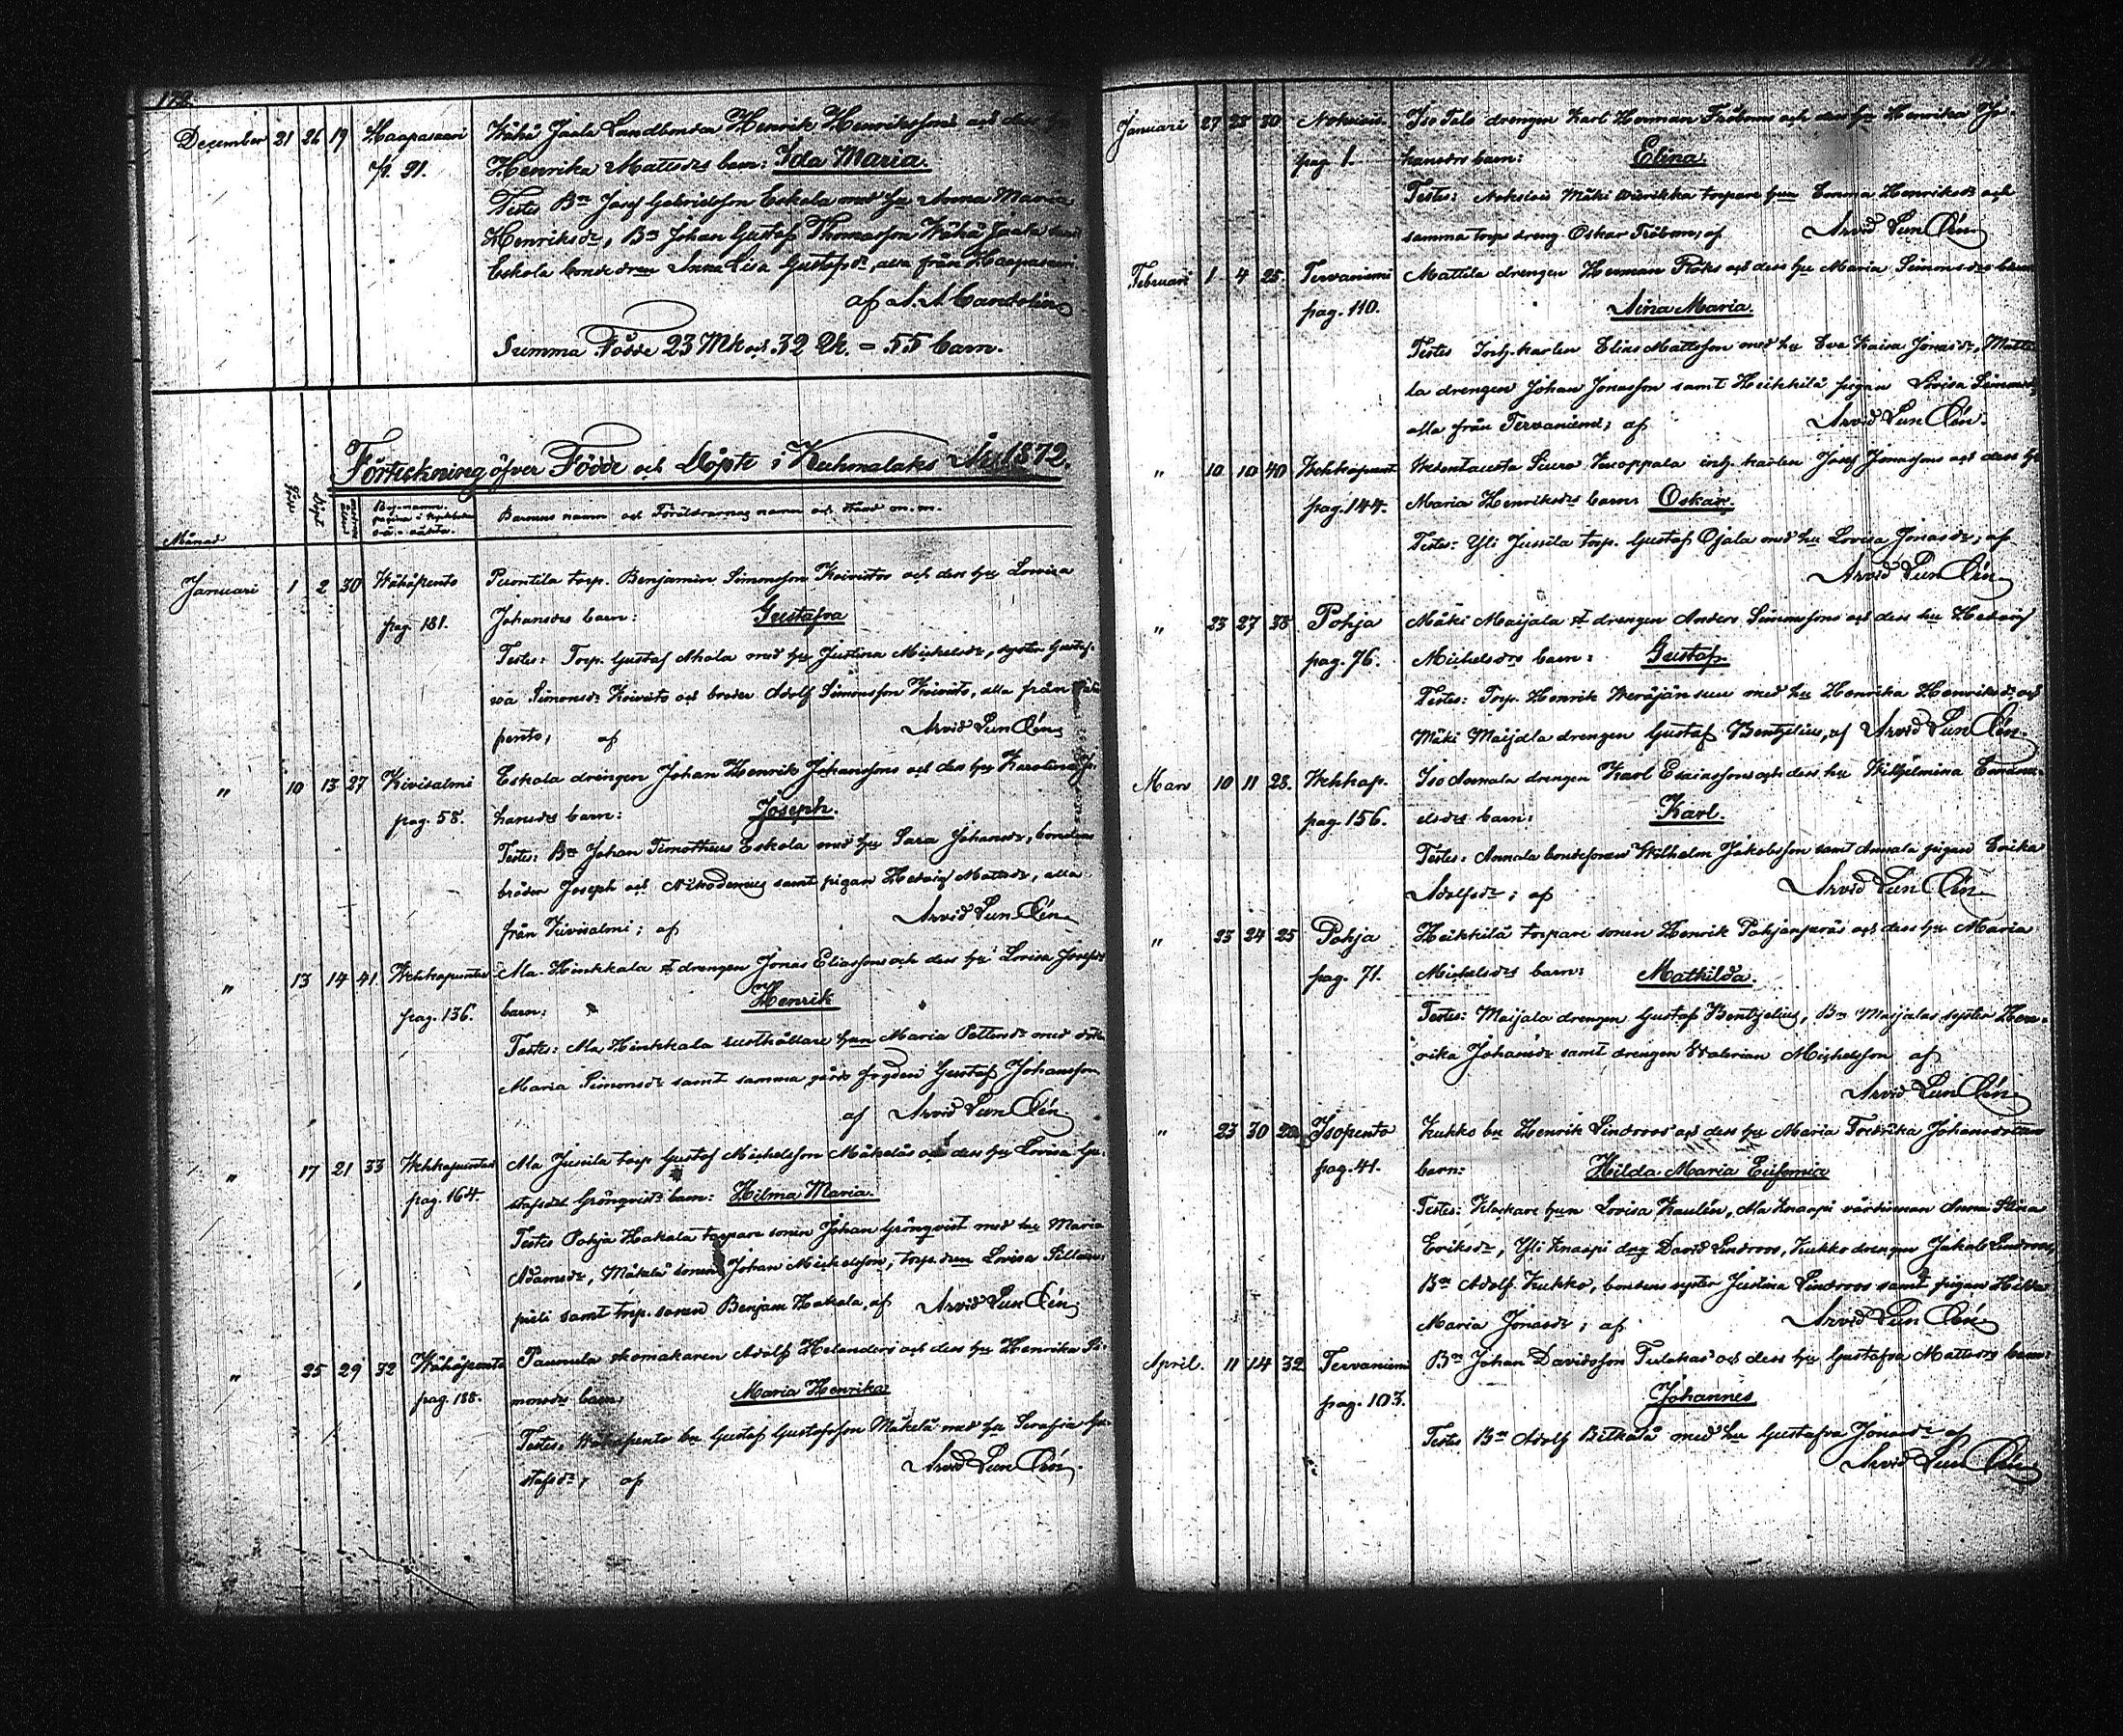 172
December 21 26 19 Haapasaari Wähä Jaala Landbonden Henrik Henrikssons och dess
p. 91. Henrika Mattsdrs barn: Ida Maria.
Testes Bn Josef Gabrielsson Eskola med hu Anna Maria
Henriksdr, Bn Johan Gustaf Thomasson Wähä Jaala
Eskola bonde Anna Lisa Gustafsdr, alla från Haapasaari
af
Summa Födde 23 Mk och 32 Qk. = 55 barn.
Förteckning öfver Födde och Döpte i Kuhmalaks År 1872.
Månad Född Döpt Barnens namn och Föräldrarnas namn och stånd m.m.
Januari 1 2 30 Wähäpento Puontila torp. Benjamin Simonsson Koivistos och dess hu Lovisa
pag. 181. Johansdrs barn: Gustafva
Testes: Torp. Gustaf Ahola med hu Justina Michelsdr, syster Gustaf-
va Simonsdr Koivisto och broder Adolf Simonsson Koivisto, alla från
pento, af Arvid Lun
" 10 13 27 Kivisalmi Eskola drengen Johan Henrik Johanssons och dess hu Karolina Jo-
pag. 58. hansdrs barn: Joseph.
Testes: Bn Johan Timotheus Eskola med hu Sara Johansdr, bondens
bröder Joseph och Nikodemus samt pigan Hedvig Mattsdr, alla
från Kivisalmi; af Arvid Lun
" 13 14 41 Wehkapuntari Ala Hinkkala drengen Jonas Eliassons och dess hu Lovisa Josephsdr
pag. 136. barn: Henrik
Testes: Ala Hinkkala rusthållare hun Maria Pettersdr med
Maria Simonsdr samt samma gårds fogden Gustaf Johansson
af Arvid Lun
" 17 21 33 Wehkapuntari Ala Jussila torp Gustaf Michelsson Mäkeläs och dess hu Lovisa Gu-
pag. 164. stafsdr Grönqvists barn: Hilma Maria.
Testes Pohja Hakala torpare sonen Johan Grönqvist med hu Maria
Adamsdr, Mäkelä sonen Johan Michelsson, torp. Lovisa
samt torp. sonen Benjam Hakala, af Arvid Lun
" 25 29 32 Wähäpento Paunula skomakaren Adolf Helanders och dess hu Henrika Si-
pag. 188. monsdrs barn: Maria Henrika
Testes: Wähäpento bn Gustaf Gustafsson Mäkelä med hu Serafia Gu-
stafsdr, af Arvid Lun
Januari 27 28 30 Nokisiis Iso Talo drengen Karl Herman Fröboms och dess hu Henrika Jo-
pag. 1. hansdrs barn: Elina.
Testes: Mäki torpare hun Emma Henriksdr och
samma torp dreng. Oskar Fröbom; af Arvid Lun
Februari 1 4 25. Tervaniemi Mattila drengen Herman och dess hu Maria Simonsdrs barn
pag. 110. Aina Maria.
Testes Inh. karlen Elias Mattsson med hu Eva Kaisa Jonasdr, Matti-
la drengen Johan Jonasson samt Heikkilä pigan Lovisa Simonsdr
alla från Tervaniemi; af Arvid Lun
" 10 10 40 Wehkapunt. Knoppala inh. karlen Josef Jonassons och dess hu
pag. 144. Maria Henriksdrs barn: Oskar.
Testes: Yli Jussila torp. Gustaf Ojala med hu Lovisa Jonasdr; af
Arvid Lun
" 23 27 38 Pohja Mäki Maijala drengen Anders Simonssons och dess hu Hedvig
pag. 76. Michelsdrs barn: Gustaf.
Testes: Torp. Henrik med hu Henrika Henriksdr och
Mäki Maijala drengen Gustaf Bentzelius, af Arvid Lun
Mars 10 11 28. Wehkap. Iso Annala drengen Karl Esaiassons och dess hu Wilhelmina Emanu-
pag. 156. elsdrs barn: Karl.
Testes: Annala bondesonen Wilhelm Jakobsson samt Annala pigan Erika
Adolfsdr; af Arvid Lun
" 23 24 25 Pohja Heikkilä torpare sonen Henrik Pohjanperäs och dess hu Maria
pag. 71. Michelsdrs barn: Mathilda.
Testes: Maijala drengen Gustaf Bentzelius, Bn Maijalas syster Hen-
rika Johansdr samt drengen Walerian Michelsson af
Arvid Lun
" 23 30 Isopento Kukko bn Henrik Lindroos' och dess hu Maria Fredrika Johansdr
pag. 41. barn: Hilda Maria Eufemia
Testes: Klockare hun Lovisa Kaulén, Ala Knaapi värdinnan Anna Stina
Eriksdr, Yli Knaapi drg David Lindroos, Kukko drengen Jakob Lindroos,
Bn Adolf Kukko, bondens syster Justina Lindroos samt pigan Hilda
Maria Jonasdr; af Arvid Lun
April. 11 14 32 Tervaniemi Bn Johan Davidsson Tulokas' och dess hu Gustafva Mattsdrs barn:
pag. 103. Johannes
Testes Bn Adolf med hu Gustafva Jonasdr af
Arvid Lun